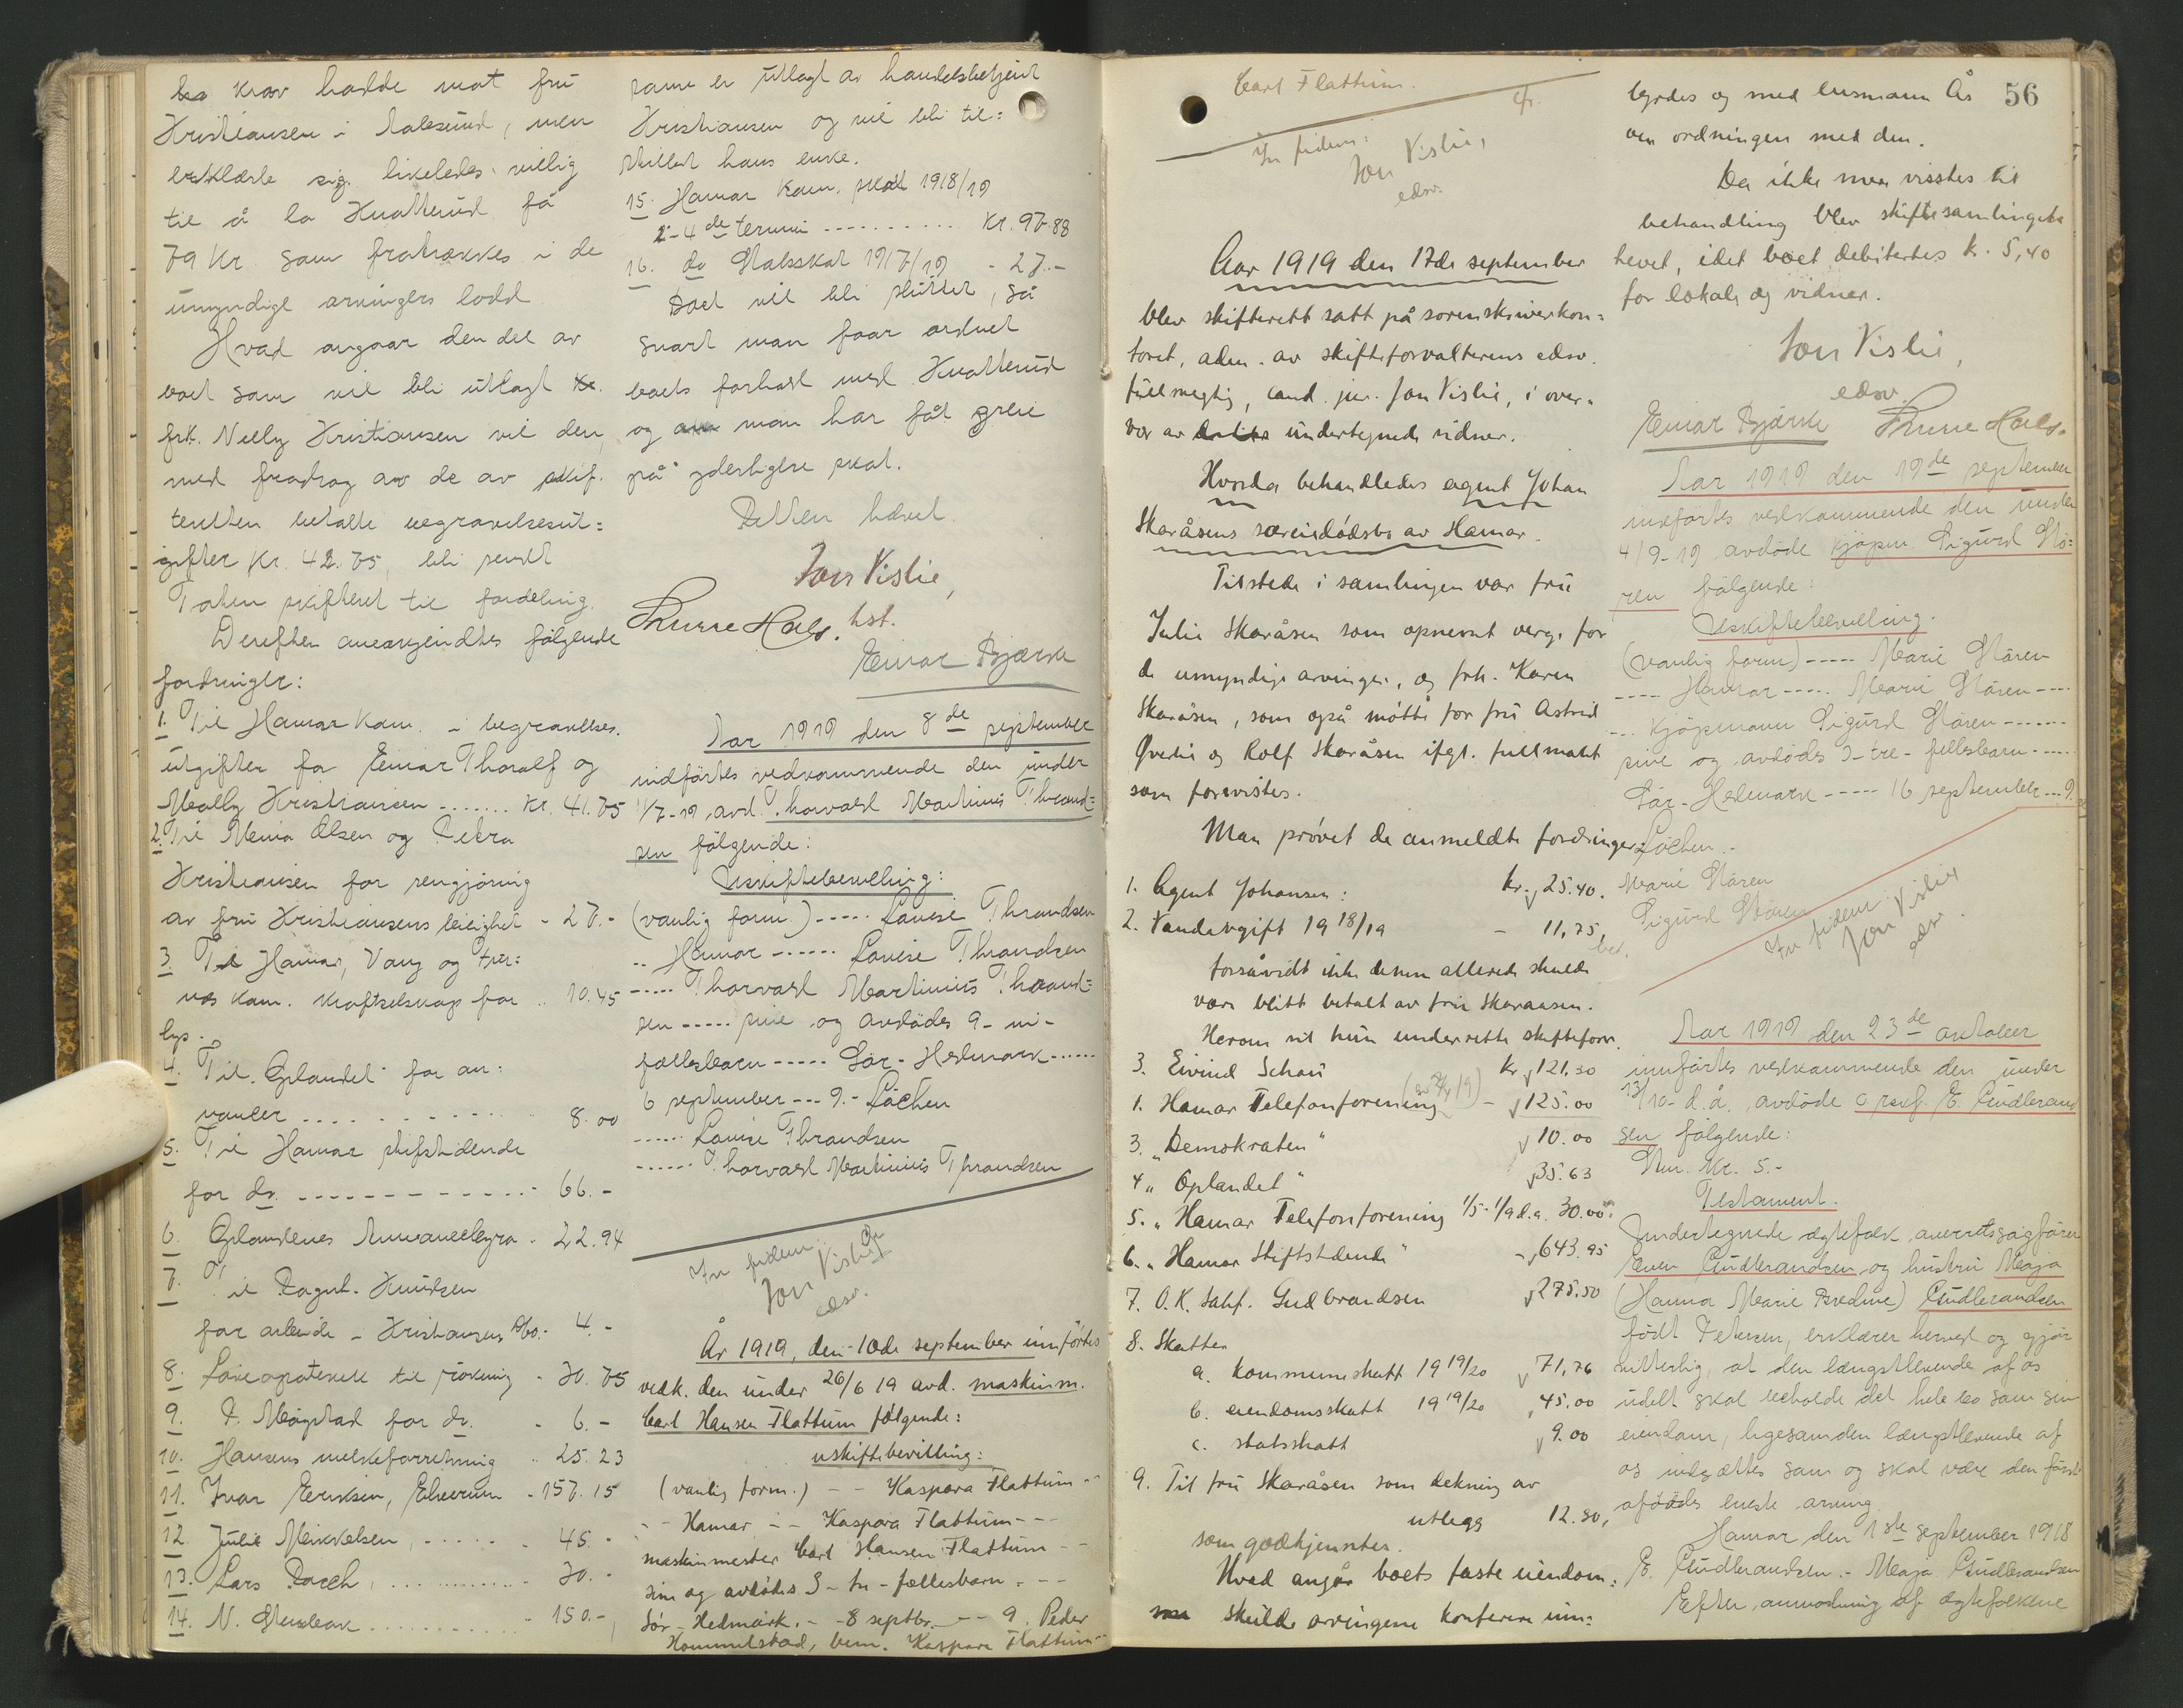 bo krav hadde mot fru
Kristiansen i Aalesund, men
erklærte sig likeledes villig
til å la Knatterud få
79 kr. som fratrækkes i de
umyndige arvingers lodd.
Hvad angaar den del av
boet som vil bli utlagt
frk. Nelly Kristiansen vil den,
med fradrag av de av skif-
teretten betalte begravelsesut=
gifter kr. 42.75, bli sendt
Toten skifteret til fordeling.
Derefter anerkjendtes følgende
fordringer:
1. Til Hamar Kom. - begravelses-
utgifter for Einar Thoralf og
Mally Kristiansen ....... kr. 41.75
2. Til Menia Olsen og Petra
Kristiansen for rengjøring
av fru Kristiansens leilighet - 27.-
3. Til Hamar, Vang og Fur=
nes kom. kraftselskap for .. 10.45
lys.
4. Til "Oplandet" for an:
noncer . . . . . . . . 8.00
5. Til Hamar stiftstidende
for do. - - - - - - - - - - - - 66.-
6. Oplandenes Annoncebyra - 22.94
7. Til Ragnh. Knudsen
for arbeide - Kristiansens bo. - 4.-
8. Løveapoteket til røkning - 30.75
9. P. Mogstad for do. - 6.-
10. Hansens melkeforretning .. 25.23
11. Ivar Eriksen, Elverum - 157.15
12. Julie Mikkelsen, . . . . . . 45.-
13. Lars Bach, . . . . . . . . . . . 30.-
14. N. Stenbæk . . . . . . . . . . . . 150.-,
som er utlagt av handelsbetjent
Kristiansen og vil bli til=
stillet hans enke.
15. Hamar Kom. skat 1918/19
2-4de termin - - - - - - - - - - kr. 97.88
16. do Statsskat 1917/19 - 27.-
Boet vil bli sluttet, så
snart man faar ordnet
boets forhold med Knatterud
og man har fåt greie
på yderligere skat.
Retten hævet.
Jon Vislie,
hst.
Thurre Hals.
Einar Bjærke
Aar 1919 den 8de september
indførtes vedkommende den under
1/7-19 avd. Thorvald Martinius Thrand=
sen følgende:
Uskiftebevilling:
(vanlig form.) ----- Lovise Thrandsen
.. Hamar ------ Lovise Thrandsen
----- Thorvald Martinius Thrand=
sen ----- sine og avdødes 9 - ni -
fællesbarn ----- Sør-Hedmark ------
6 september --- 9.- Løchen
------ Lovise Thrandsen
------ Thorvald Martinius Thrandsen
cfr.
In fidem:
Jon Vislie
edsv.
År 1919, den 10de september innførtes
vedk. den under 26/6 19 avd. maskinm.
Carl Hansen Flattum følgende:
uskiftebevilling:
(vanlig form.) - - Kaspara Flattum - -
- - Hamar - - Kaspara Flattum - - -
maskinmester Carl Hansen Flattum - -
sine og avdødes 3 - tre - fællesbarn - - -
Sør-Hedmark. - - 8 septbr. - - 9. Peder
Hommelstad, bem. Kaspara Flattum -
Carl Flattum.
cfr.
In fidem:
Jon Vislie,
edsv.
Aar 1919 den 17de september
blev skifterett satt på sorenskriverkon=
toret, adm. av skifteforvalterens edsv.
fullmegtig, cand. jur. Jon Vislie, i over=
vær av undertegnede vidner.
Hvorda behandledes agent Johan
Skaråsens særeiedødsbo av Hamar.
Tilstede i samlingen var fru
Julie Skaråsen som opnevnt verge for
de umyndige arvinger, og frk. Karen
Skaråsen, som også møtte for fru Astrid
Øverlie og Rolf Skaråsen ifgl. fullmakt
som forevistes.
Man prøvet de anmeldte fordringer:
1. Agent Johansen: kr. 25.40.
2. Vandavgift 1918/19 - 11,75,
bet.
forsåvidt ikke denne allerede skulde
være blitt betalt av fru Skaraasen.
Herom vil hun underrette skifteforv.
3. Eivind Schou kr. 121.30
1. Hamar Telefonforening - 125.00
3. "Demokraten" 10.00
4 "Oplandet" 35.63
5. "Hamar Telefonforening 1/5-1/9 d.a. 30.00
6. "Hamar Stiftstidende" - 643.95
7. O.K. Sahf. Gudbrandsen 275.50
8. Skatter
a. kommuneskatt 1919/20 71,76
b. eiendomsskatt 1919/20 45.00
c. statsskatt 9.00
9. Til fru Skaråsen som dekning av
utlegg 12.80,
som godkjentes.
Hvad angår boets faste eiendom:
skulde arvingene konferere inn=
56
byrdes og med lensmann Ås
om ordningen med den.
Da ikke mere visstes til
behandling blev skiftesamlingen
hevet, idet boet debitertes kr. 5,40
for lokale og vidner.
Jon Vislie,
edsv.
Einar Bjærke Thurre Hals.
Aar 1919 den 19de september
indførtes vedkommende den under
4/9-19 avdøde kjøpm. Sigurd Stø=
ren følgende:
Uskiftebevilling.
(vanlig form) ----- Marie Støren
---- Hamar ----- Marie Støren ----
--- kjøpmann Sigurd Støren -------
sine og avdødes 3 - tre - fellesbarn -----
Sør-Hedmark ----- 16 september --- 9.
Løchen.-
Marie Støren
Sigurd Støren
In fidem:
Jon Vislie
edsv.
Aar 1919 den 23de oktober
innførtes vedkommende den under
13/10 d.å. avdøde o.r.sakf. E. Gudbrand
sen følgende:
Stm. Kr. 5.-
Testament.
Undertegnede ægtefolk, overretssagfører
Even Gudbrandsen og hustru Maja
(Hanna Marie Bredine) Gudbrandsen
født Petersen, erklærer herved og gjør
vitterlig, at den længstlevende af os
udelt skal beholde det hele bo som sin
eiendom, ligesom den længstlevende af
os indsættes som og skal være den først
afdødes eneste arving.
Hamar den 1ste september 1918
E. Gudbrandsen.- Maja Gudbrandsen
Efter anmodning af ægtefolkene